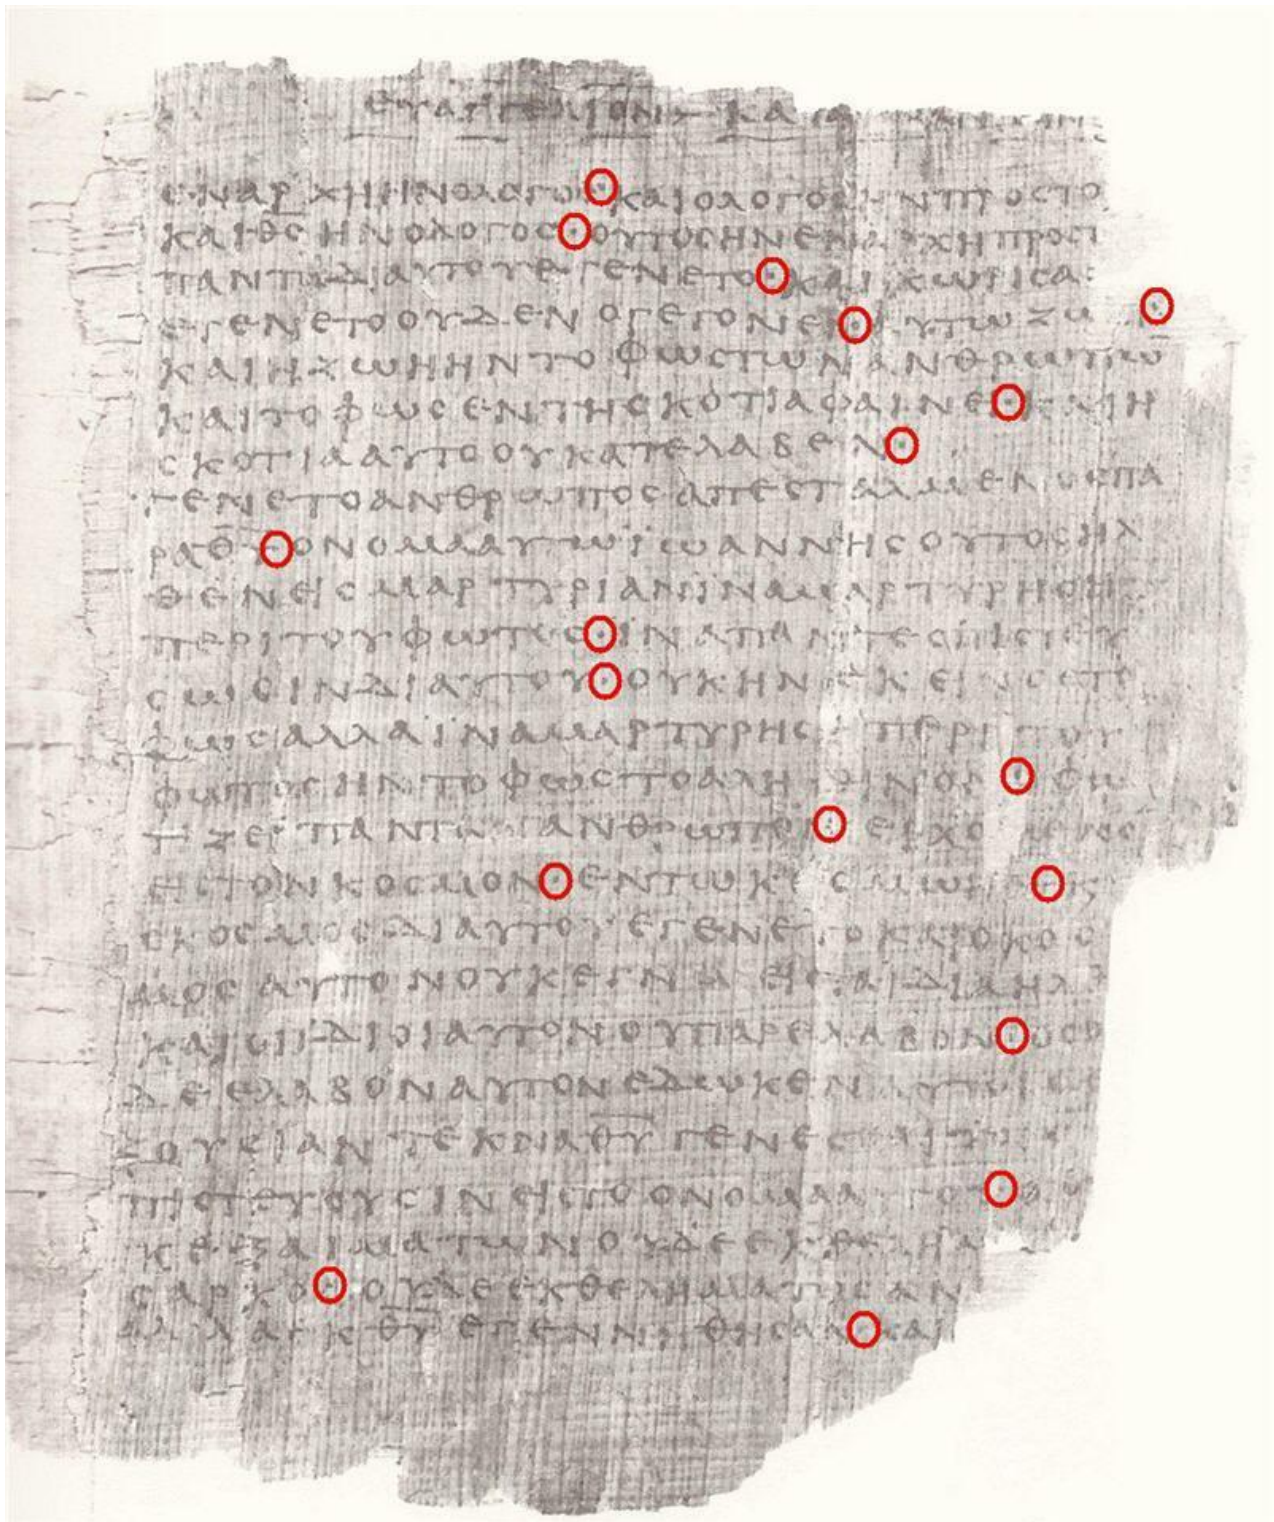 ΕΥΑΓΓΕΛΙΟΝ ΚΑΤΑ
ΕΝΑΡΧΗΗΝΟΛΟΓΟΣ·ΚΑΙΟΛΟΓΟΣΗΝΠΡΟΣΤΟ
ΚΑΙΘΣΗΝΟΛΟΓΟΣ·ΟΥΤΟΣΗΝΕΝΑΡΧΗΠΡΟΣΤ
ΠΑΝΤΑΔΙΑΥΤΟΥΕΓΕΝΕΤΟ·ΚΑΙΧΩΡΙΣΑ
ΕΓΕΝΕΤΟΟΥΔΕΝΟΓΕΓΟΝΕΝ·ΥΤΩΖΩ ·
ΚΑΙΗΖΩΗΗΝΤΟΦΩΣΤΩΝΑΝΘΡΩΠΩ
ΚΑΙΤΟΦΩΣΕΝΤΗΣΚΟΤΙΑΦΑΙΝΕΙ·ΚΑΙΗ
ΣΚΟΤΙΑΑΥΤΟΟΥΚΑΤΕΛΑΒΕΝ·
ΓΕΝΕΤΟΑΝΘΡΩΠΟΣΑΠΕΣΤΑΛΜΕΝΟΣΠΑ
ΡΑΘΥ·ΟΝΟΜΑΑΥΤΩΪΩΑΝΝΗΣΟΥΤΟΣΗΛ
ΘΕΝΕΙΣΜΑΡΤΥΡΙΑΝΪΝΑΜΑΡΤΥΡΗΣΗ
ΠΕΡΙΤΟΥΦΩΤΟΣ·ΙΝΑΠΑΝΤΕΣΠΙΣΤΕΥ
ΣΩΣΙΝΔΙΑΥΤΟΥ·ΟΥΚΗΝΕΚΕΙΝΟΣΤΟ
ΦΩΣΑΛΛΑΪΝΑΜΑΡΤΥΡΗΣΗΠΕΡΙΤΟΥ
ΦΩΤΟΣΗΝΤΟΦΩΣΤΟΑΛΗΘΙΝΟΝ·ΦΩ
ΤΙΖΕΙΠΑΝΤΑΑΝΘΡΩΠΟΝ·ΕΡΧΟΜΕΝΟ
ΕΙΣΤΟΝΚΟΣΜΟΝ·ΕΝΤΩΚΟΣΜΩΗΝ·Κ
ΟΚΟΣΜΟΣΔΙΑΥΤΟΥΕΓΕΝΕΤΟΚΑΙΟΚΟΣ
ΜΟΣΑΥΤΟΝΟΥΚΕΓΝΩΕΙΣΤΑΙΔΙΑΗΛΘ
ΚΑΙΟΙΙΔΙΟΙΑΥΤΟΝΟΥΠΑΡΕΛΑΒΟΝ·ΟΣΟ
ΔΕΕΛΑΒΟΝΑΥΤΟΝΕΔΩΚΕΝΑΥΤΟΙΣΕ
ΞΟΥΣΙΑΝΤΕΚΝΑΘΥΓΕΝΕΣΘΑΙΤΟΙΣ
ΠΙΣΤΕΥΟΥΣΙΝΕΙΣΤΟΟΝΟΜΑΑΥΤΟΥ·Ο
ΚΕΞΑΙΜΑΤΩΝΟΥΔΕΕΚΘΕΛΗΜΑ
ΣΑΡΚΟΣ·ΟΥΔΕΕΚΘΕΛΗΜΑΤΟΣΑΝ
ΑΛΛΑΕΚΘΥΕΓΕΝΝΗΘΗΣΑΝ·ΚΑΙ